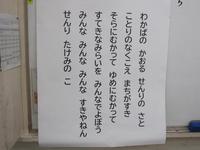 わかばの かおる せんりの さと
ことりのなくこえ まちがすき
そらにむかって ゆめにむかって
すてきなみらいを みんなでよぼう
みんな みんな みんな すきやねん
せんり たけみの こ